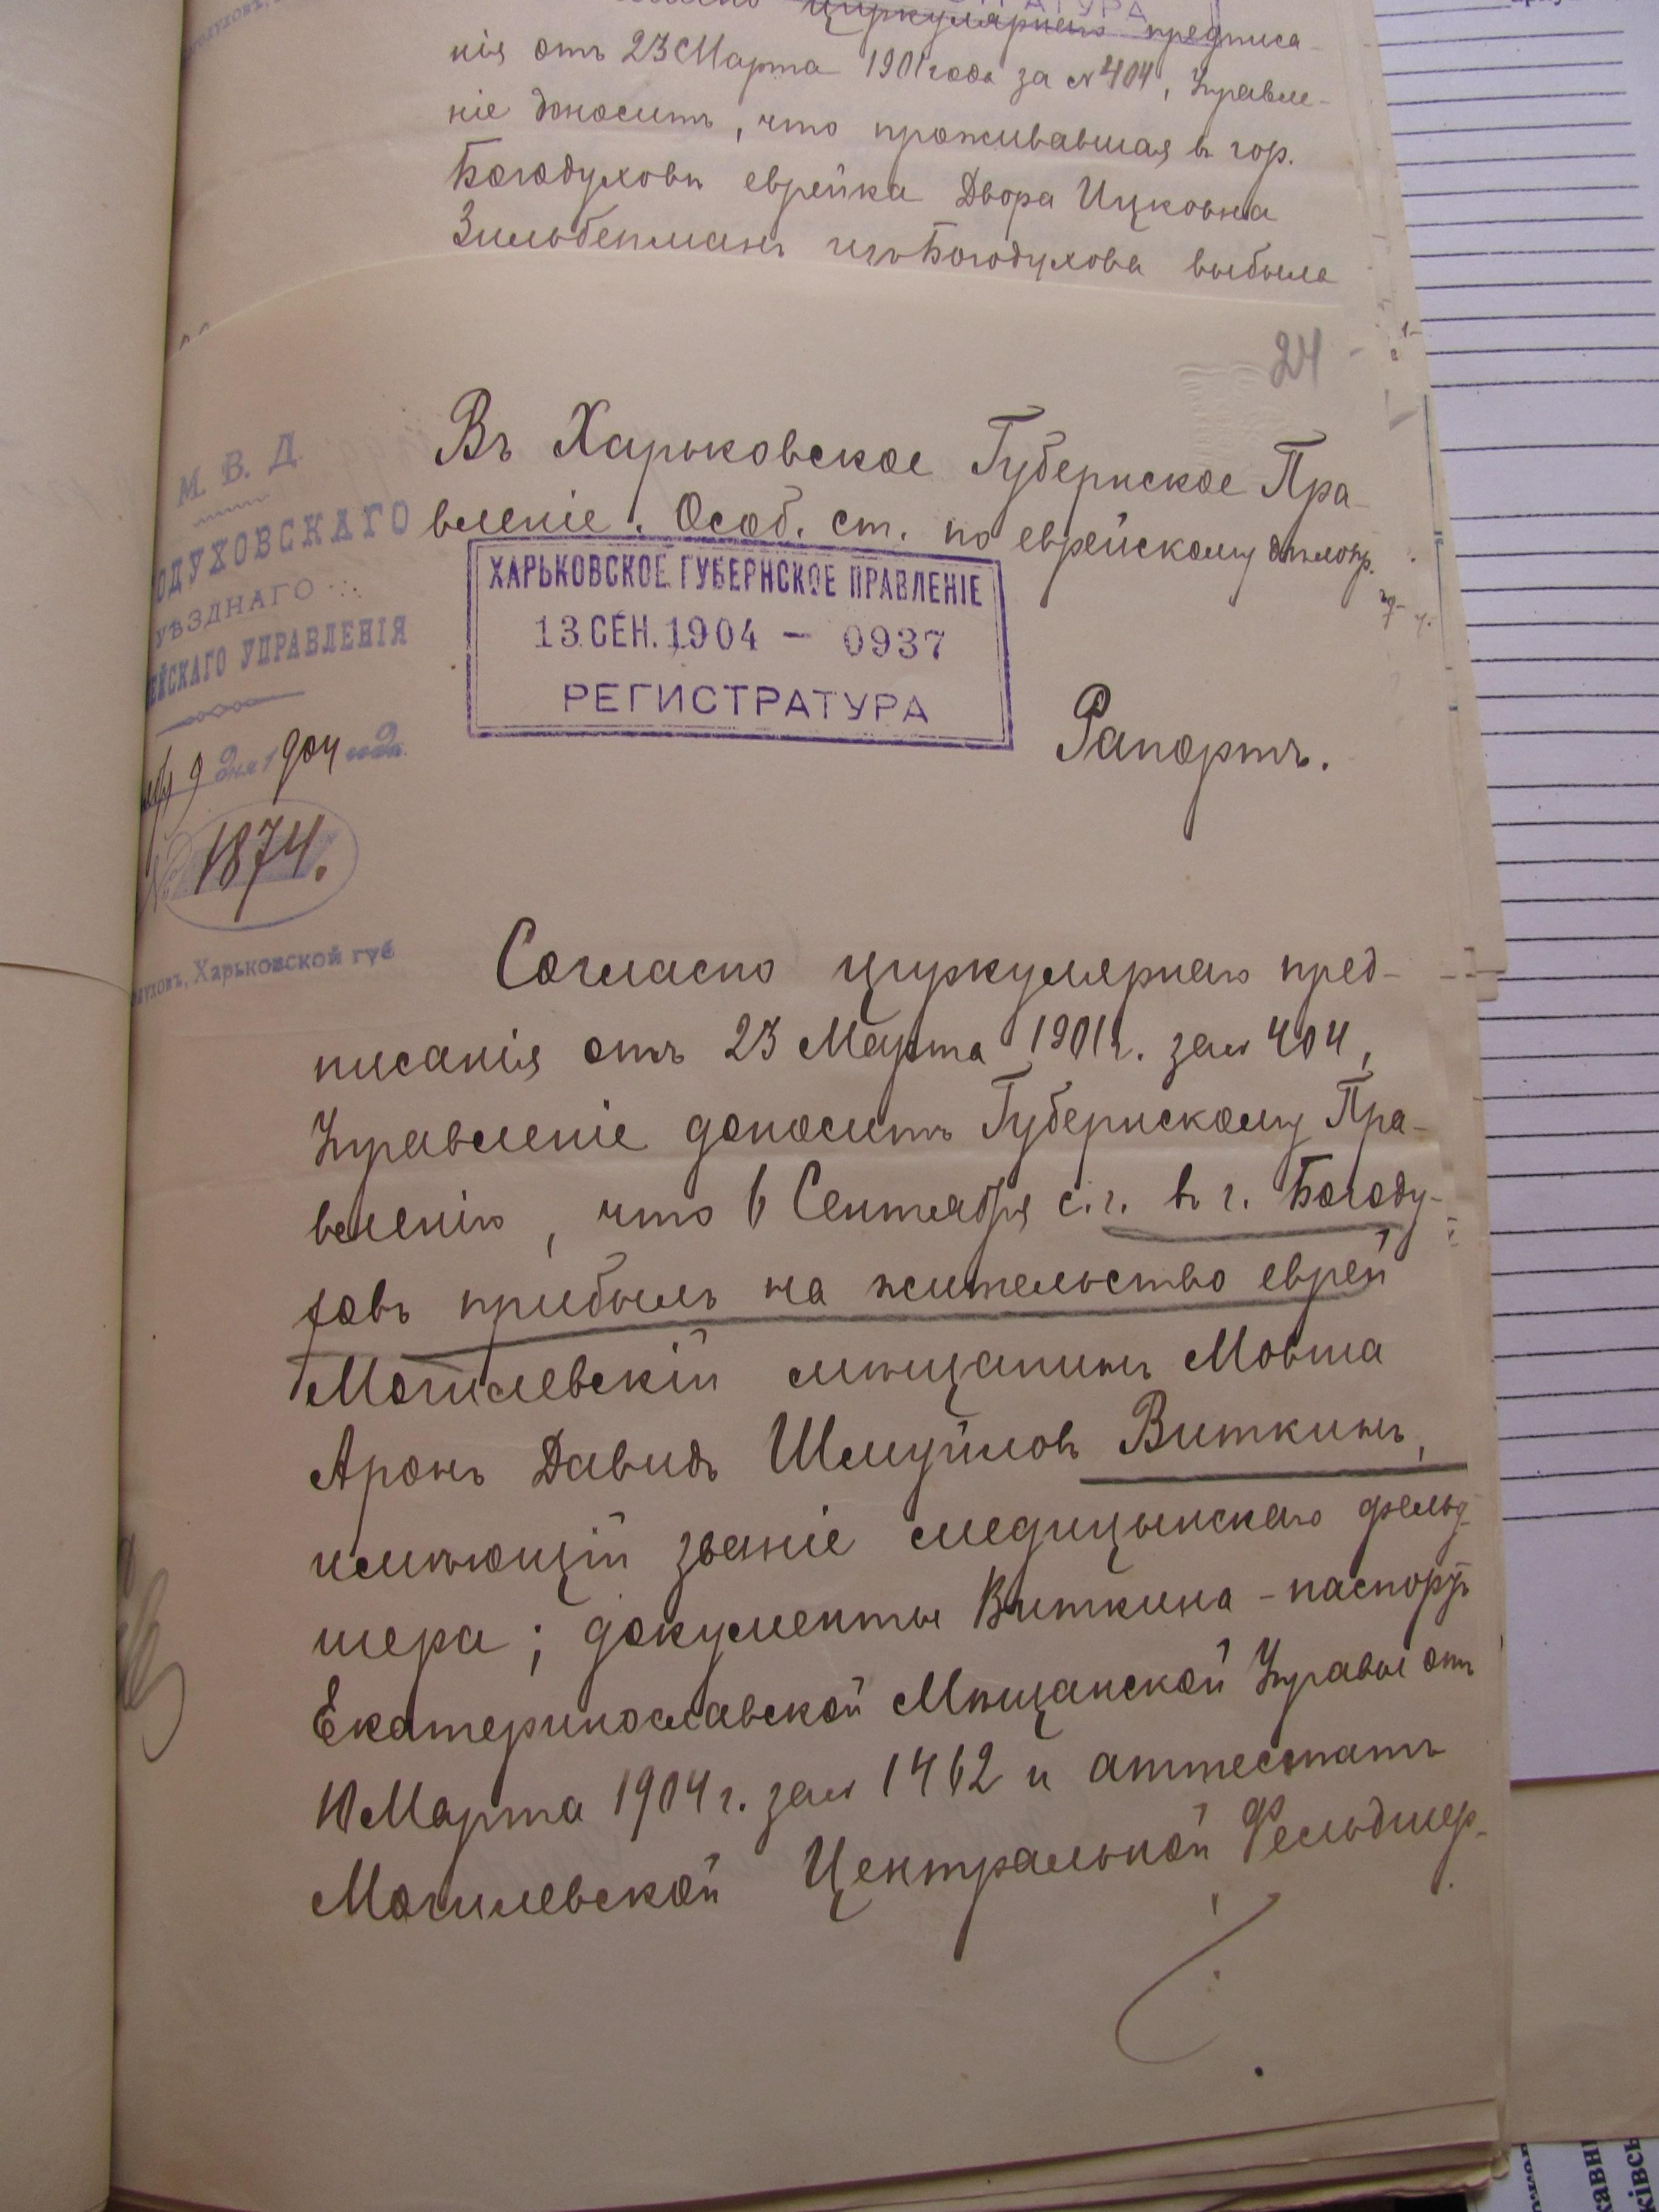 циркулярнаго предписа-
нія отъ 23 Марта 1901 года за № 404, Управле-
ніе доноситъ, что проживавшая въ гор.
Богодуховѣ еврейка Двора Ицковна
Зильберманъ изъ Богодухова выбыла
24
Въ Харьковское Губернское Пра-
вленіе. Особ. ст. по еврейскому дѣлопр.
М. В. Д.
ОДУХОВСКАГО
УѢЗДНАГО
ЕЙСКАГО УПРАВЛЕНІЯ
9 дня 1904 года.
№ 1874.
духовъ, Харьковской губ
ХАРЬКОВСКОЕ ГУБЕРНСКОЕ ПРАВЛЕНІЕ
13 СЕН. 1904 — 0937
РЕГИСТРАТУРА
Рапортъ.
Согласно циркулярнаго пред-
писанія отъ 23 Марта 1901 г. за № 404,
Управленіе доноситъ Губернскому Пра-
вленію, что 6 Сентября с.г. въ г. Богоду-
ховъ прибылъ на жительство еврей
Могилевскій мѣщанинъ Мовша
Аронъ Давидъ Шмуйловъ Виткинъ,
имѣющій званіе медицынскаго фельд-
шера; документы Виткина - паспортъ
Екатеринославской Мѣщанской Управы отъ
10 Марта 1904 г. за № 1462 и аттестатъ
Могилевской Центральной Фельдшер-